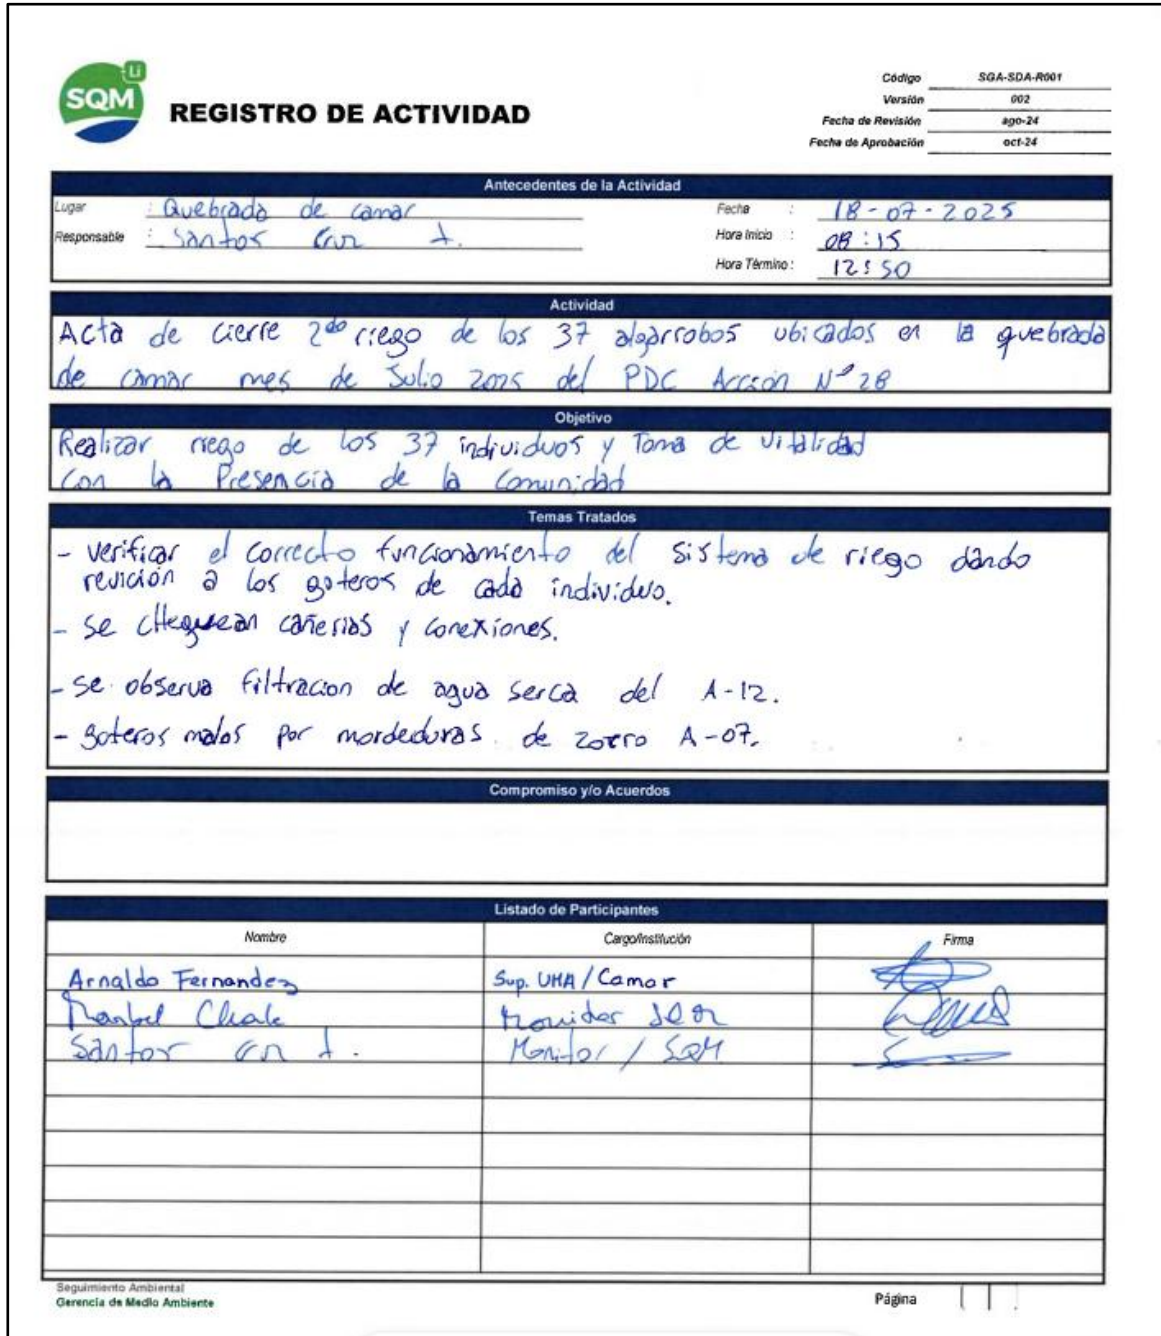 Li
SQM
REGISTRO DE ACTIVIDAD
Código SGA-SDA-R001
Versión 002
Fecha de Revisión ago-24
Fecha de Aprobación oct-24
Antecedentes de la Actividad
Lugar : Quebrada de camar
Fecha : 18-07-2025
Responsable : Santos
Hora Inicio : 08:15
Hora Término : 12:50
Actividad
Acta de cierre 2do riego de los 37 algarrobos ubicados en la quebrada
de camar mes de Julio 2025 del PDC Acción Nº 28
Objetivo
Realizar riego de los 37 individuos y Toma de vitalidad
con la Presencia de la Comunidad
Temas Tratados
- verificar el correcto funcionamiento del sistema de riego dando
revición a los goteros de cada individuo.
- se chequean cañerias y conexiones.
- se observa filtracion de agua serca del A-12.
- goteros malos por mordeduras de zorro A-07.
Compromiso y/o Acuerdos
Listado de Participantes
Nombre Cargo/Institución Firma
Arnaldo Fernandez Sup. UMA / Camar
Monitor SQM
Santos Monitor / SQM
Seguimiento Ambiental
Gerencia de Medio Ambiente
Página